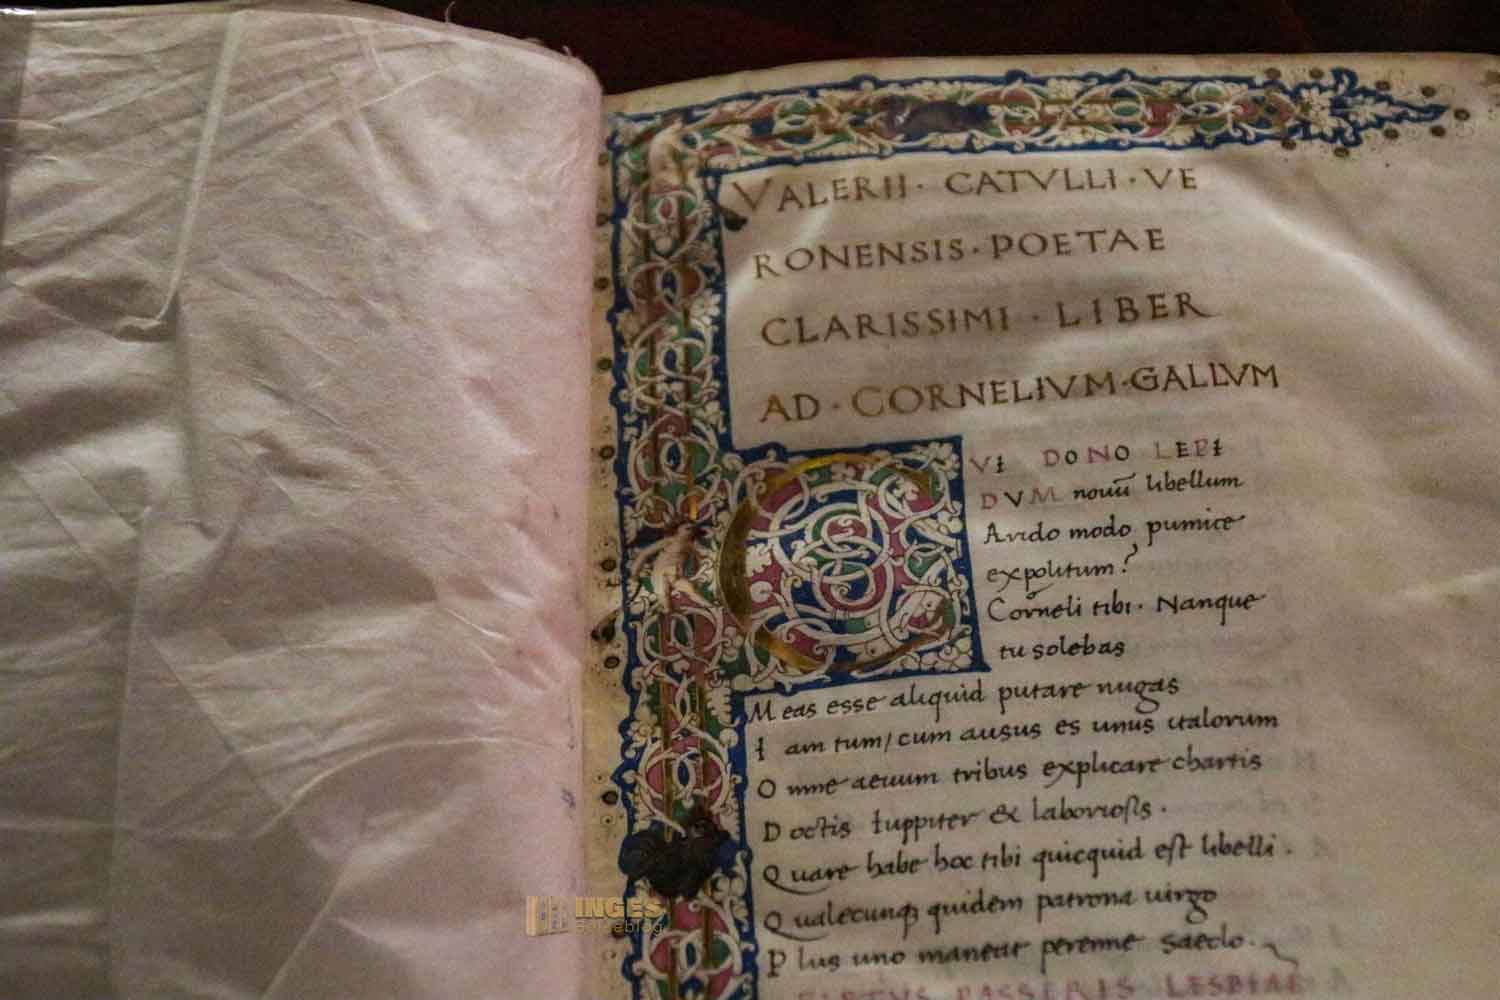 VALERII · CATVLLI · VE
RONENSIS · POETAE
CLARISSIMI · LIBER
AD · CORNELIVM · GALLVM
VI DONO LEPI
DVM nouū libellum
Arido modo pumice
expolitum?
Corneli tibi. Nanque
tu solebas
Meas esse aliquid putare nugas
Iam tum/cum ausus es unus italorum
Omne aeuum tribus explicare chartis
Doctis Iuppiter & laboriosis.
Quare habe hoc tibi quicquid est libelli.
Qualecunqȝ quidem patrona uirgo
Plus uno maneat perenne saeclo.
FLETVS PASSERIS LESBIAE
INGES
Reiseblog